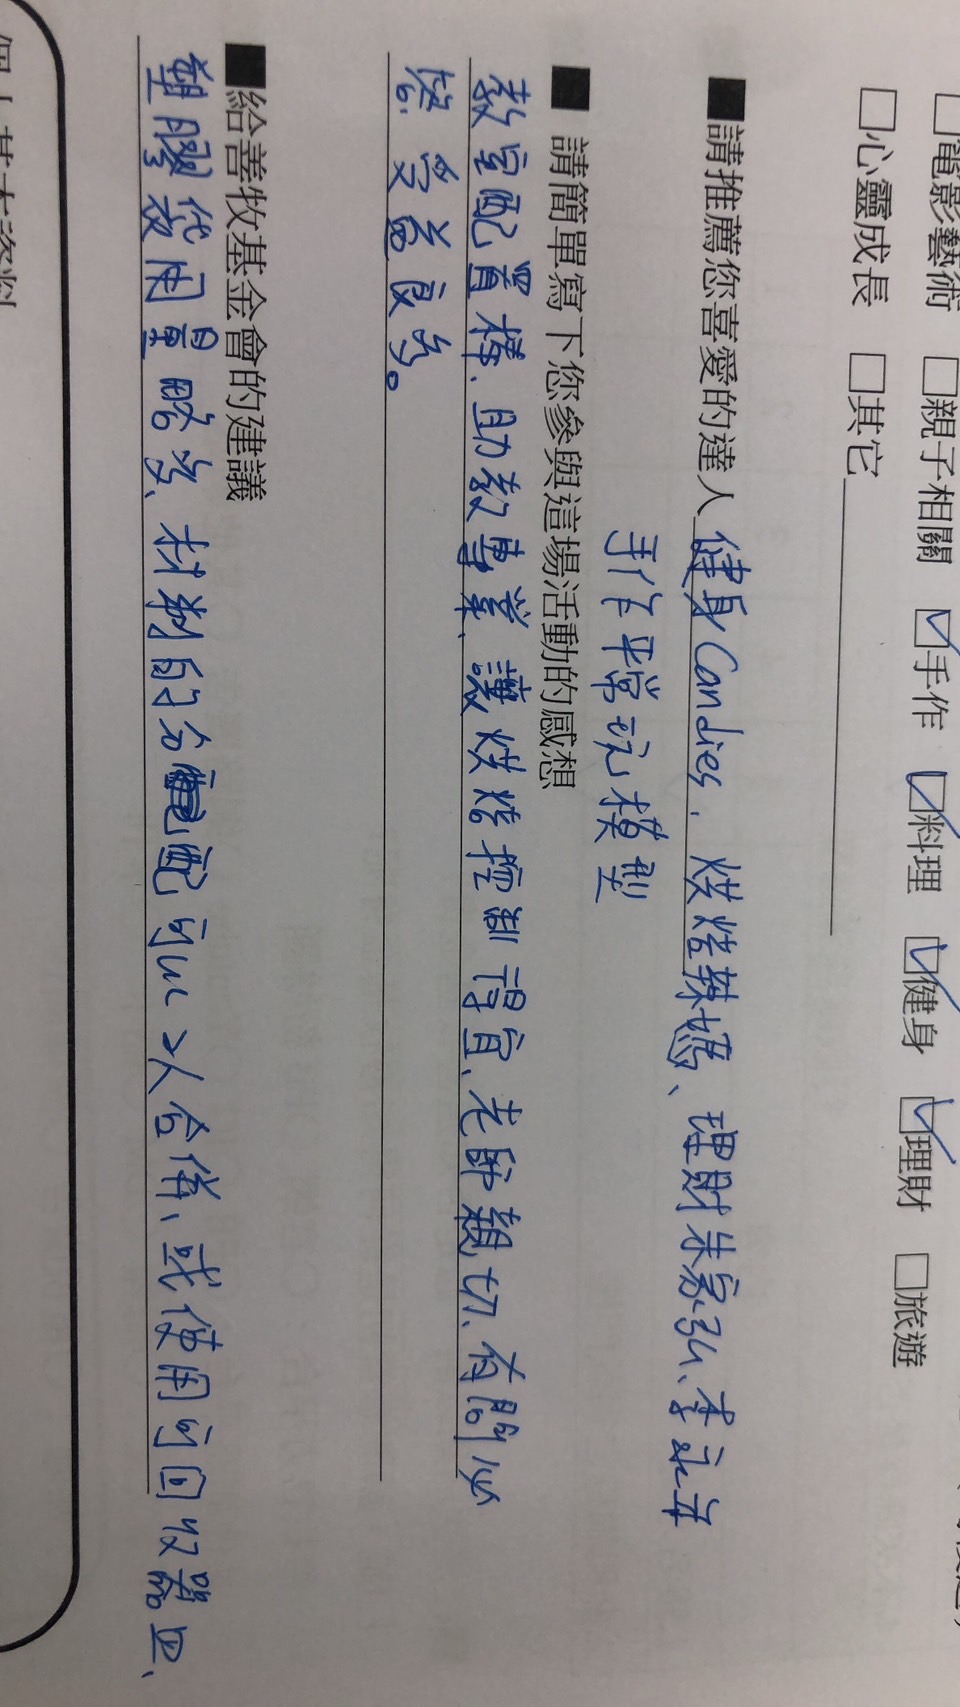 □電影藝術 □親子相關 ☑手作 ☑料理 ☑健身 ☑理財 □旅遊
□心靈成長 □其它
■請推薦您喜愛的達人 健身Candies、烘焙辣媽、理財朱家弘、李永年
手作平常玩模型
■ 請簡單寫下您參與這場活動的感想
教室配置棒、助教專業、讓烘焙控制得宜、老師親切、有問必
答。受益良多。
■給善牧基金會的建議
塑膠袋用量略多、材料的分配可以2人合併、或使用可回收器皿、
個人基本資料